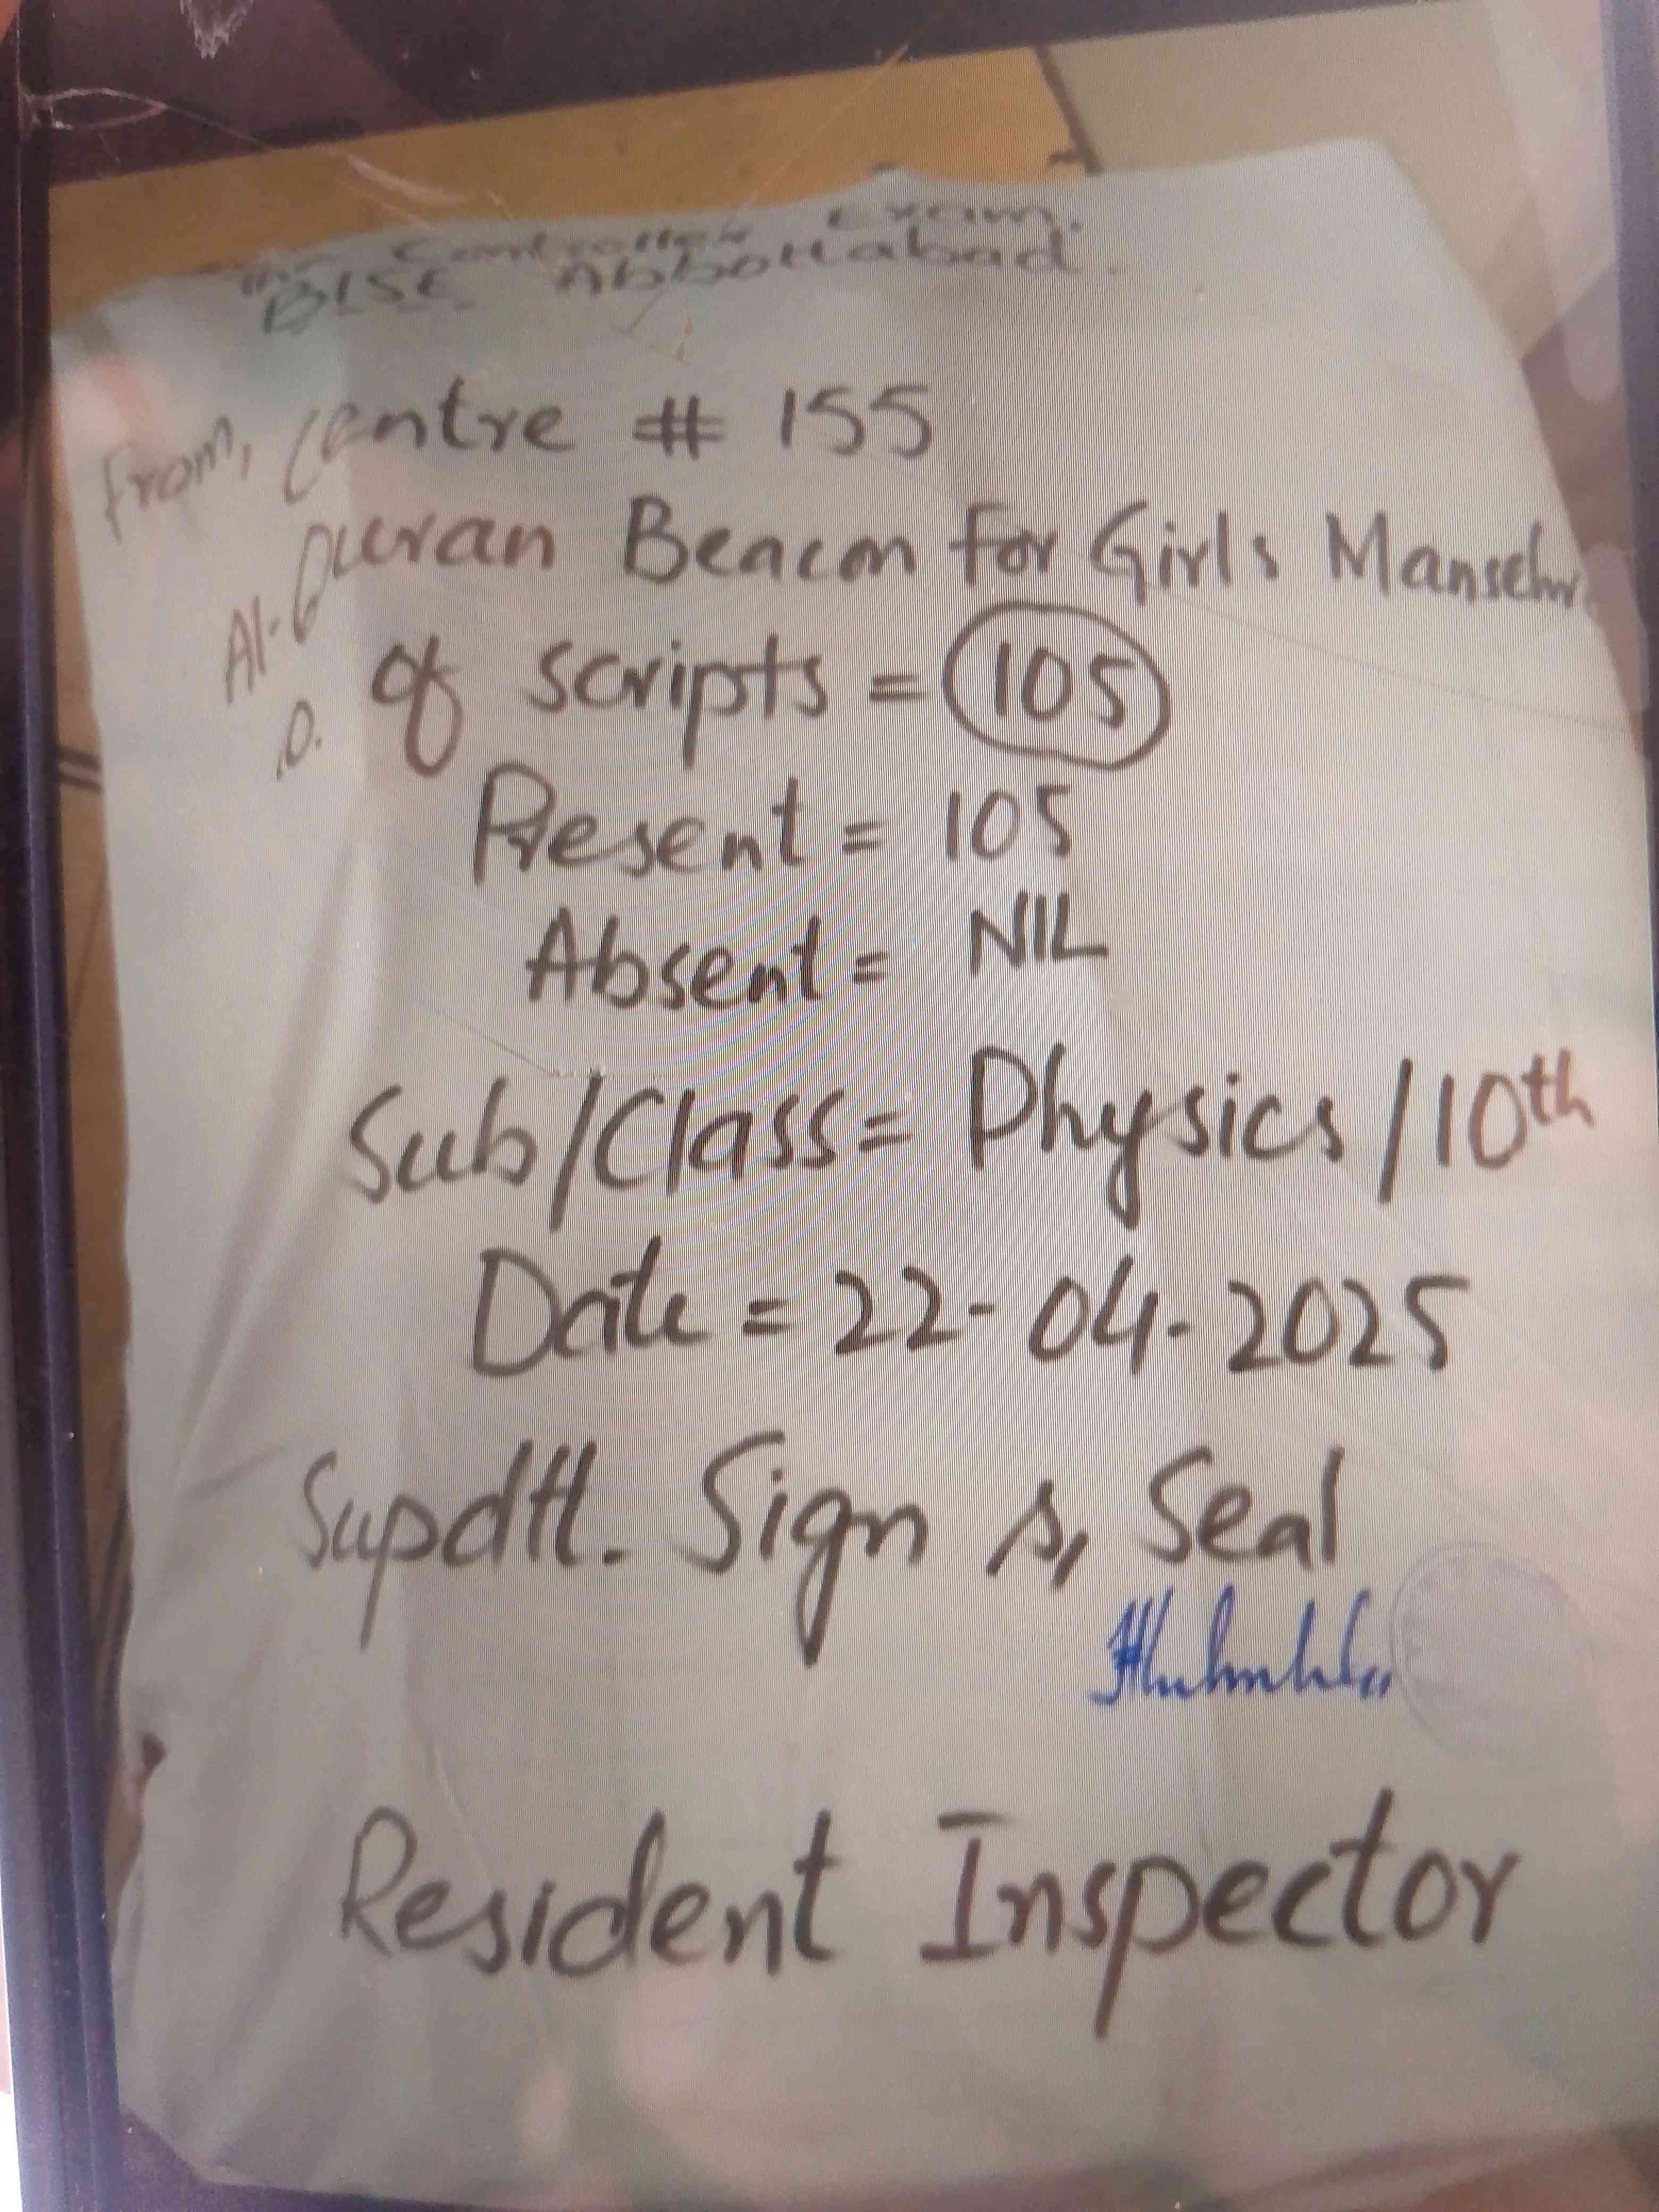 The Controller Exam.
BISE Abbottabad.
From, Centre # 155
Al-Quran Beacon for Girls Mansehra
o. of scripts = 105
Present = 105
Absent = NIL
Sub/Class = Physics / 10th
Date = 22-04-2025
Supdtt. Sign &, Seal
Resident Inspector